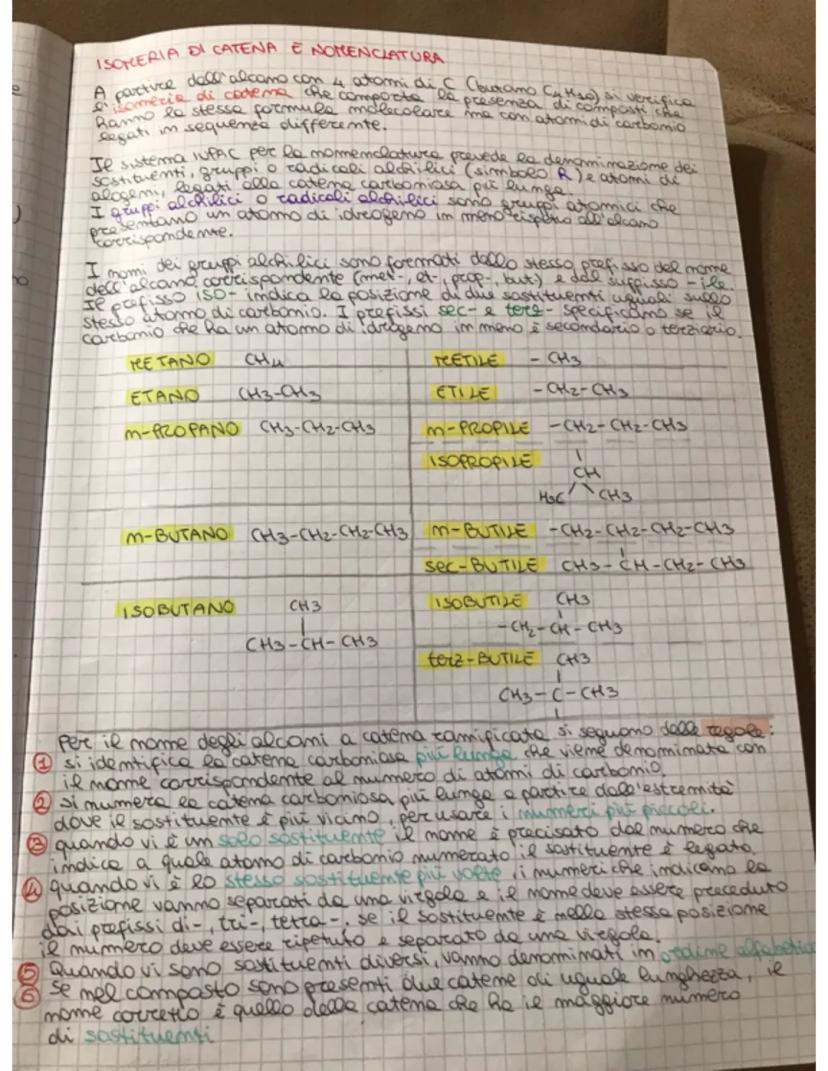 ISOMERIA DI CATENA E NOMENCLATURA
A partire dall'alcano con 4 atomi di C (butano C4H10) si verifica
l'isomeria di catena che comporta la presenza di composti che
hanno la stessa formula molecolare ma con atomi di carbonio
legati in sequenza differente.
Il sistema IUPAC per la nomenclatura prevede la denominazione dei
sostituenti, gruppi o radicali alchilici (simbolo R) e atomi di
alogeni, legati alla catena carboniosa più lunga.
I gruppi alchilici o radicali alchilici sono gruppi atomici che
presentano un atomo di idrogeno in meno rispetto all'alcano
corrispondente.
I nomi dei gruppi alchilici sono formati dallo stesso prefisso del nome
dell'alcano corrispondente (met-, et-, prop-, but) e dal suffisso -ile.
Il prefisso ISO- indica la posizione di due sostituenti uguali sullo
stesso atomo di carbonio. I prefissi sec- e terz- specificano se il
carbonio che ha un atomo di idrogeno in meno è secondario o terziario.
METANO CH4 METILE - CH3
ETANO CH3-CH3 ETILE -CH2-CH3
n-PROPANO CH3-CH2-CH3 n-PROPILE -CH2-CH2-CH3
ISOPROPILE
CH
H3C CH3
n-BUTANO CH3-CH2-CH2-CH3 n-BUTILE -CH2-CH2-CH2-CH3
sec-BUTILE CH3-CH-CH2-CH3
ISOBUTANO CH3 ISOBUTILE CH3
CH3-CH-CH3 -CH2-CH-CH3
terz-BUTILE CH3
CH3-C-CH3
Per il nome degli alcani a catena ramificata si seguono delle regole:
1 si identifica la catena carboniosa più lunga che viene denominata con
il nome corrispondente al numero di atomi di carbonio.
2 si numera la catena carboniosa più lunga a partire dall'estremità
dove il sostituente è più vicino, per usare i numeri più piccoli.
3 quando vi è un solo sostituente il nome è precisato dal numero che
indica a quale atomo di carbonio numerato il sostituente è legato.
4 quando vi è lo stesso sostituente più volte, i numeri che indicano la
posizione vanno separati da una virgola e il nome deve essere preceduto
dai prefissi di-, tri-, tetra-. se il sostituente è nella stessa posizione
il numero deve essere ripetuto e separato da una virgola.
5 Quando vi sono sostituenti diversi, vanno denominati in ordine alfabetico
6 Se nel composto sono presenti due catene di uguale lunghezza, il
nome corretto è quello della catena che ha il maggiore numero
di sostituenti